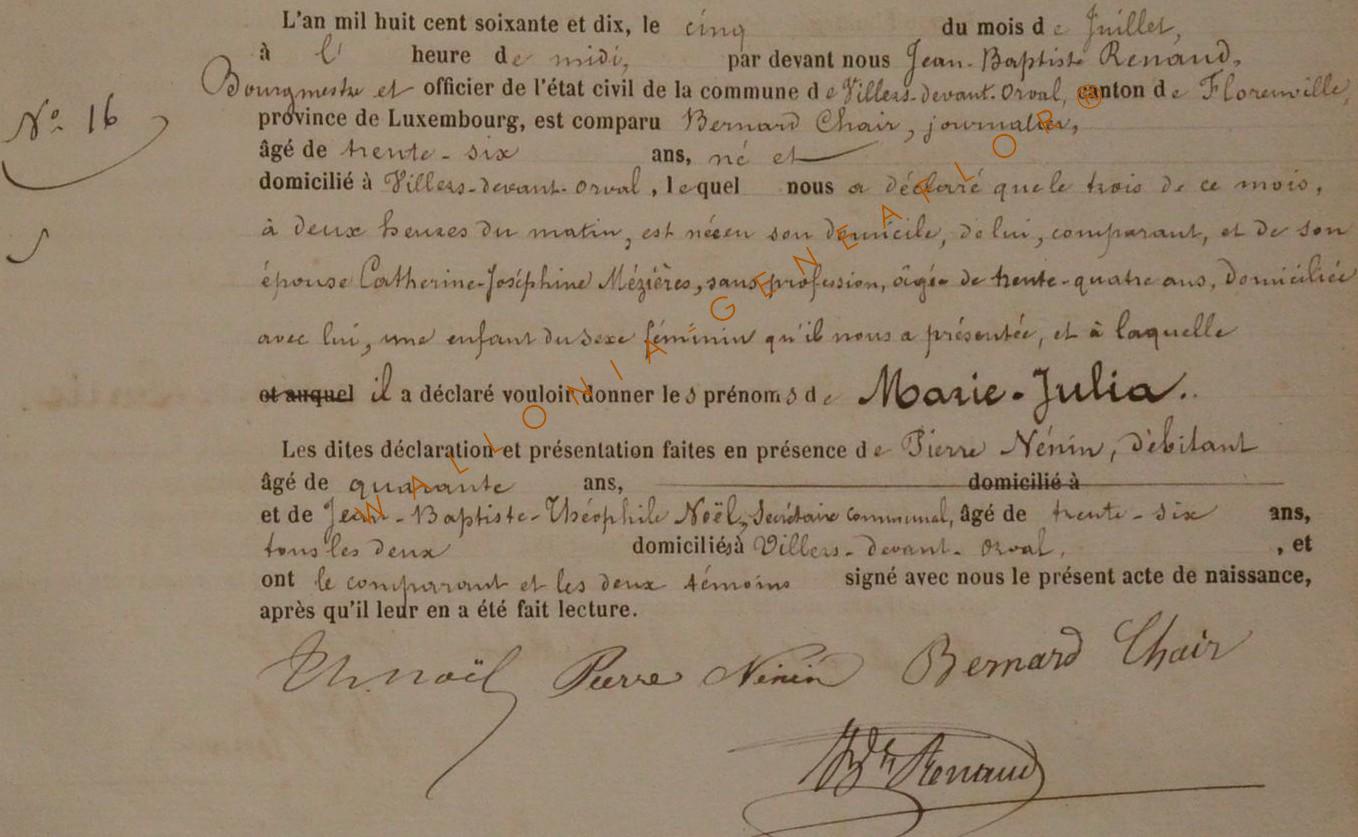 L'an mil huit cent soixante et dix, le cinq du mois de Juillet,
à l' heure de midi, par devant nous Jean-Baptiste Renaud,
Bourgmestre et officier de l'état civil de la commune de Villers-devant-Orval, canton de Florenville,
No 16
province de Luxembourg, est comparu Bernard Chair, journalier,
âgé de trente-six ans, né et
domicilié à Villers-devant-Orval, lequel nous a déclaré que le trois de ce mois,
à deux heures du matin, est née en son domicile, de lui, comparant, et de son
épouse Catherine-Joséphine Mézières, sans profession, âgée de trente-quatre ans, domiciliée
avec lui, une enfant du sexe féminin qu'il nous a présentée, et à laquelle
et auquel il a déclaré vouloir donner les prénoms de Marie-Julia.
Les dites déclaration et présentation faites en présence de Pierre Nénin, débitant
âgé de quarante ans, domicilié à
et de Jean-Baptiste-Théophile Noël, Secrétaire communal, âgé de trente-six ans,
tous les deux domiciliés à Villers-devant-Orval, , et
ont le comparant et les deux témoins signé avec nous le présent acte de naissance,
après qu'il leur en a été fait lecture.
Th. Noël Pierre Nénin Bernard Chair
Renaud
WALLONIA-GENEALOR®